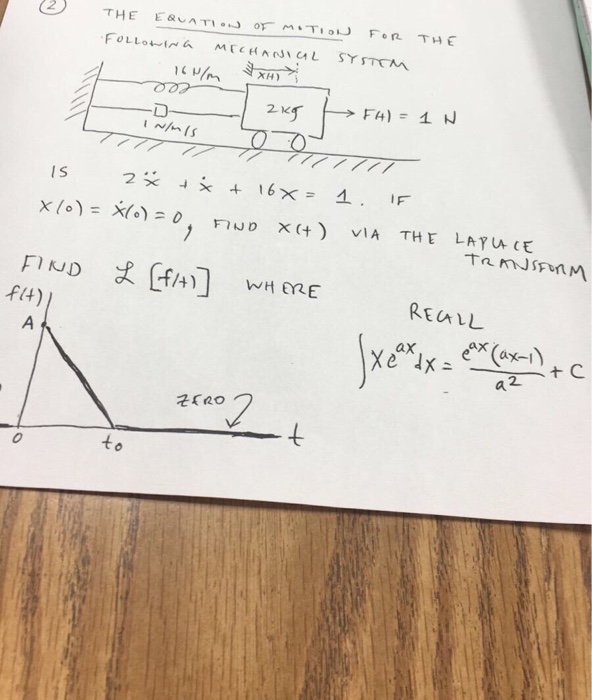 2
THE EQUATION OF MOTION FOR THE
FOLLOWING MECHANICAL SYSTEM
16 N/m
X(t)
2 kg
F(t) = 1 N
1 N/m/s
IS 2ẍ + ẋ + 16x = 1. IF
x(0) = ẋ(0) = 0, FIND X(t) VIA THE LAPLACE
TRANSFORM
FIND ℒ [f(t)] WHERE
f(t)
A
0
t₀
ZERO
t
RECALL
∫xe^{ax}dx = e^{ax}(ax-1)/a² + C